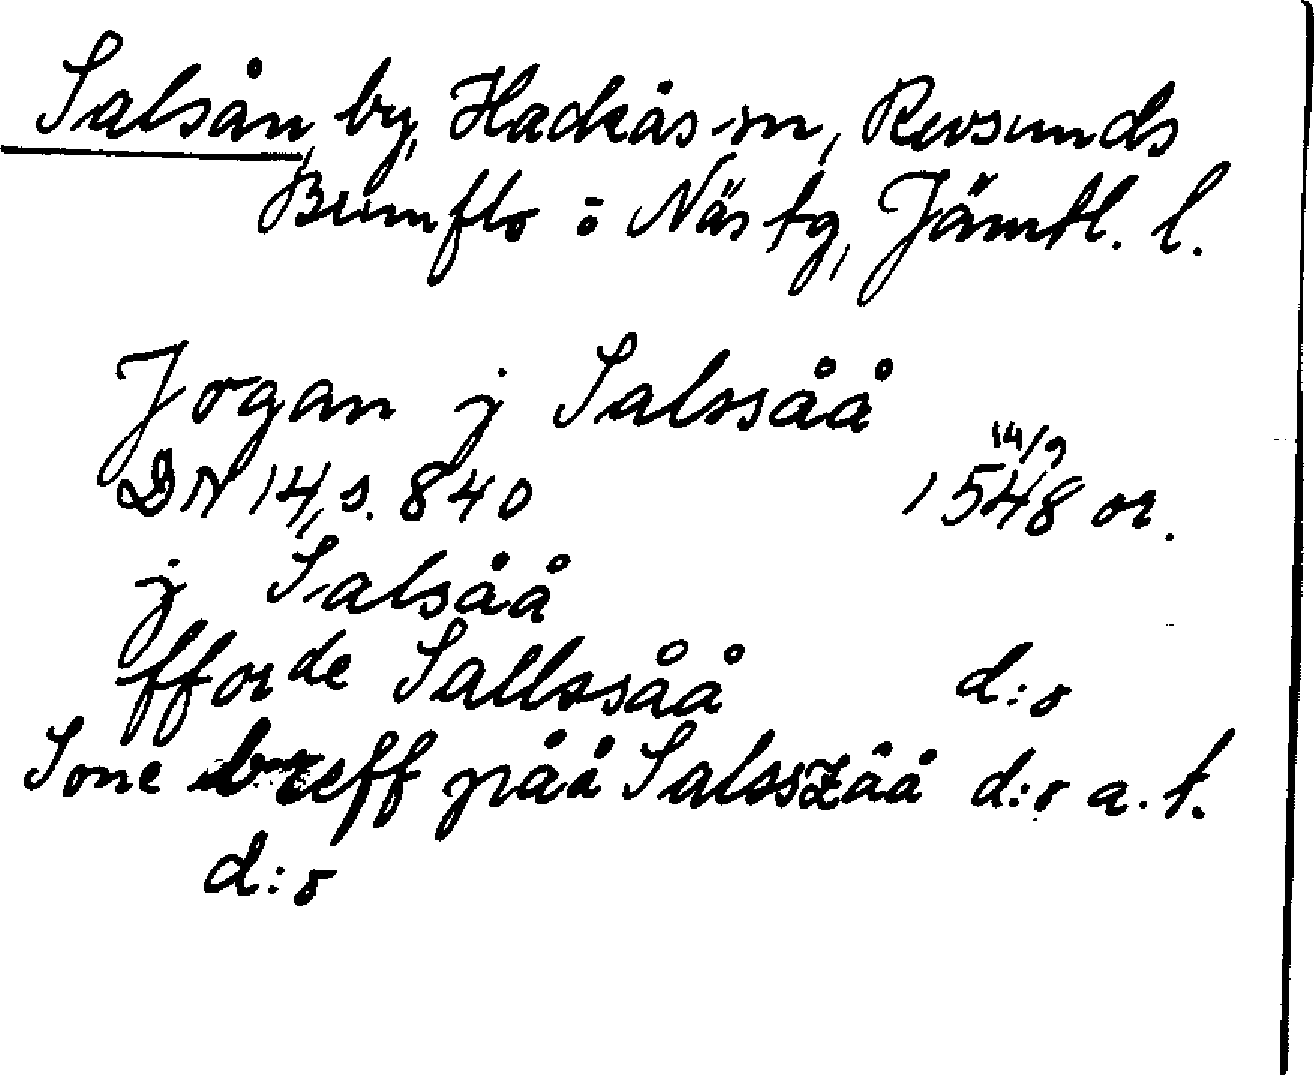 Salsån, by, Hackås sn, Revsunds
Brunflo o Näs tg, Jämtl. l.
Jogan j Salssåå
14/9
DN 14, s. 840 1548 or.
j Salsåå
fforde Sallssåå d:o
Sone breff påå Salsszåå d:o a. st.
d:o